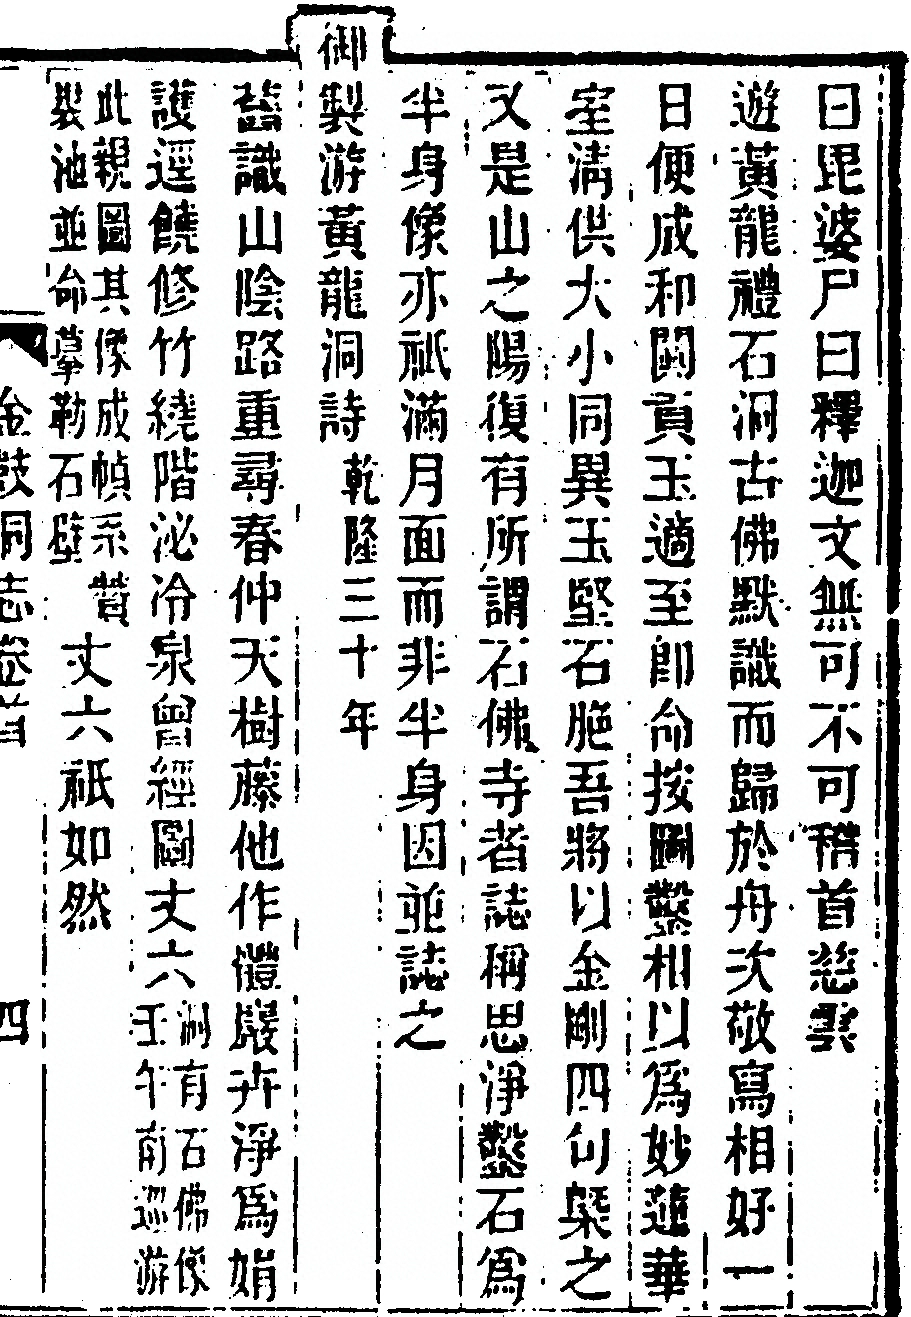 曰毘婆尸曰釋迦文無可不可稽首慈雲
遊黃龍禮石洞古佛默識而歸於舟次敬寫相好一
日便成和闐貢玉適至即命按圖鑿相以爲妙蓮華
室淸供大小同異玉堅石脃吾將以金剛四句槩之
又是山之陽復有所謂石佛寺者誌稱思淨鑿石爲
半身像亦祇滿月面而非半身因並誌之
御製游黃龍洞詩 乾隆三十年
舊識山陰路重尋春仲天樹藤他作禮巖卉淨爲娟
護逕饒修竹繞階泌冷泉曾經圖丈六 洞有石佛像壬午南巡游
此親圖其像成幀系贊裝池並命摹勒石壁 丈六祇如然
金鼓洞志卷首 四